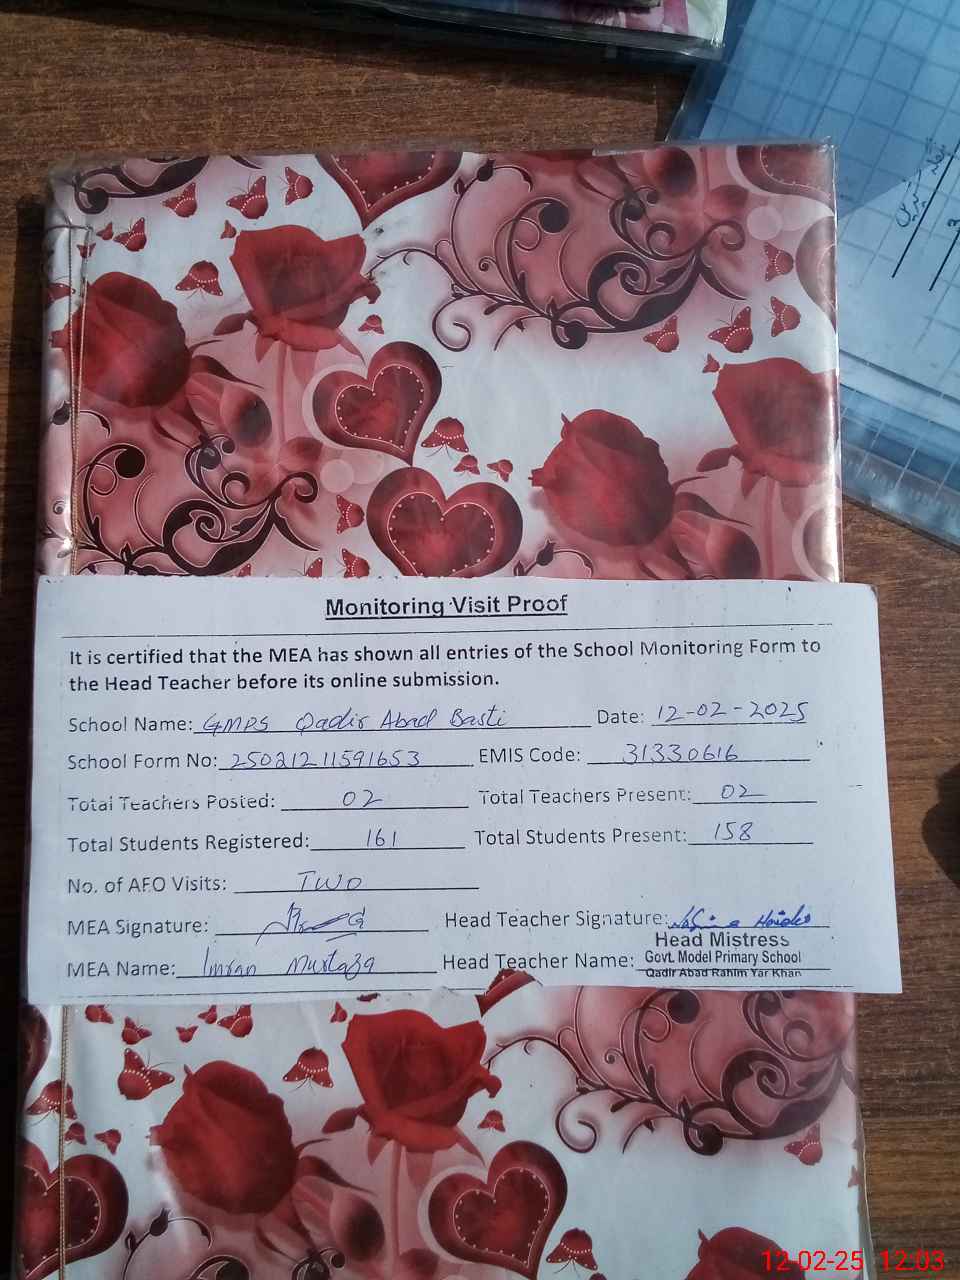 Monitoring Visit Proof
It is certified that the MEA has shown all entries of the School Monitoring Form to
the Head Teacher before its online submission.
School Name: GMPS Qadir Abad Basti Date: 12-02-2025
School Form No: 25021211591653 EMIS Code: 31330616
Total Teachers Posted: 02 Total Teachers Present: 02
Total Students Registered: 161 Total Students Present: 158
No. of AEO Visits: Two
MEA Signature: Head Teacher Signature:
Head Mistress
MEA Name: Imran Murtaza Head Teacher Name: Govt. Model Primary School
Qadir Abad Rahim Yar Khan
12-02-25 12:03